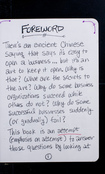 FOREWORD
There's an ancient Chinese
saying that says it's easy to
open a business... but it's an
art to keep it open. Why is
that? What are the secrets to
the art? Why do some business
organizations succeed while
others do not? Why do some
successful businesses suddenly
(or gradually) fail?
This book is an attempt
(emphasis on attempt) to answer
those questions by looking at